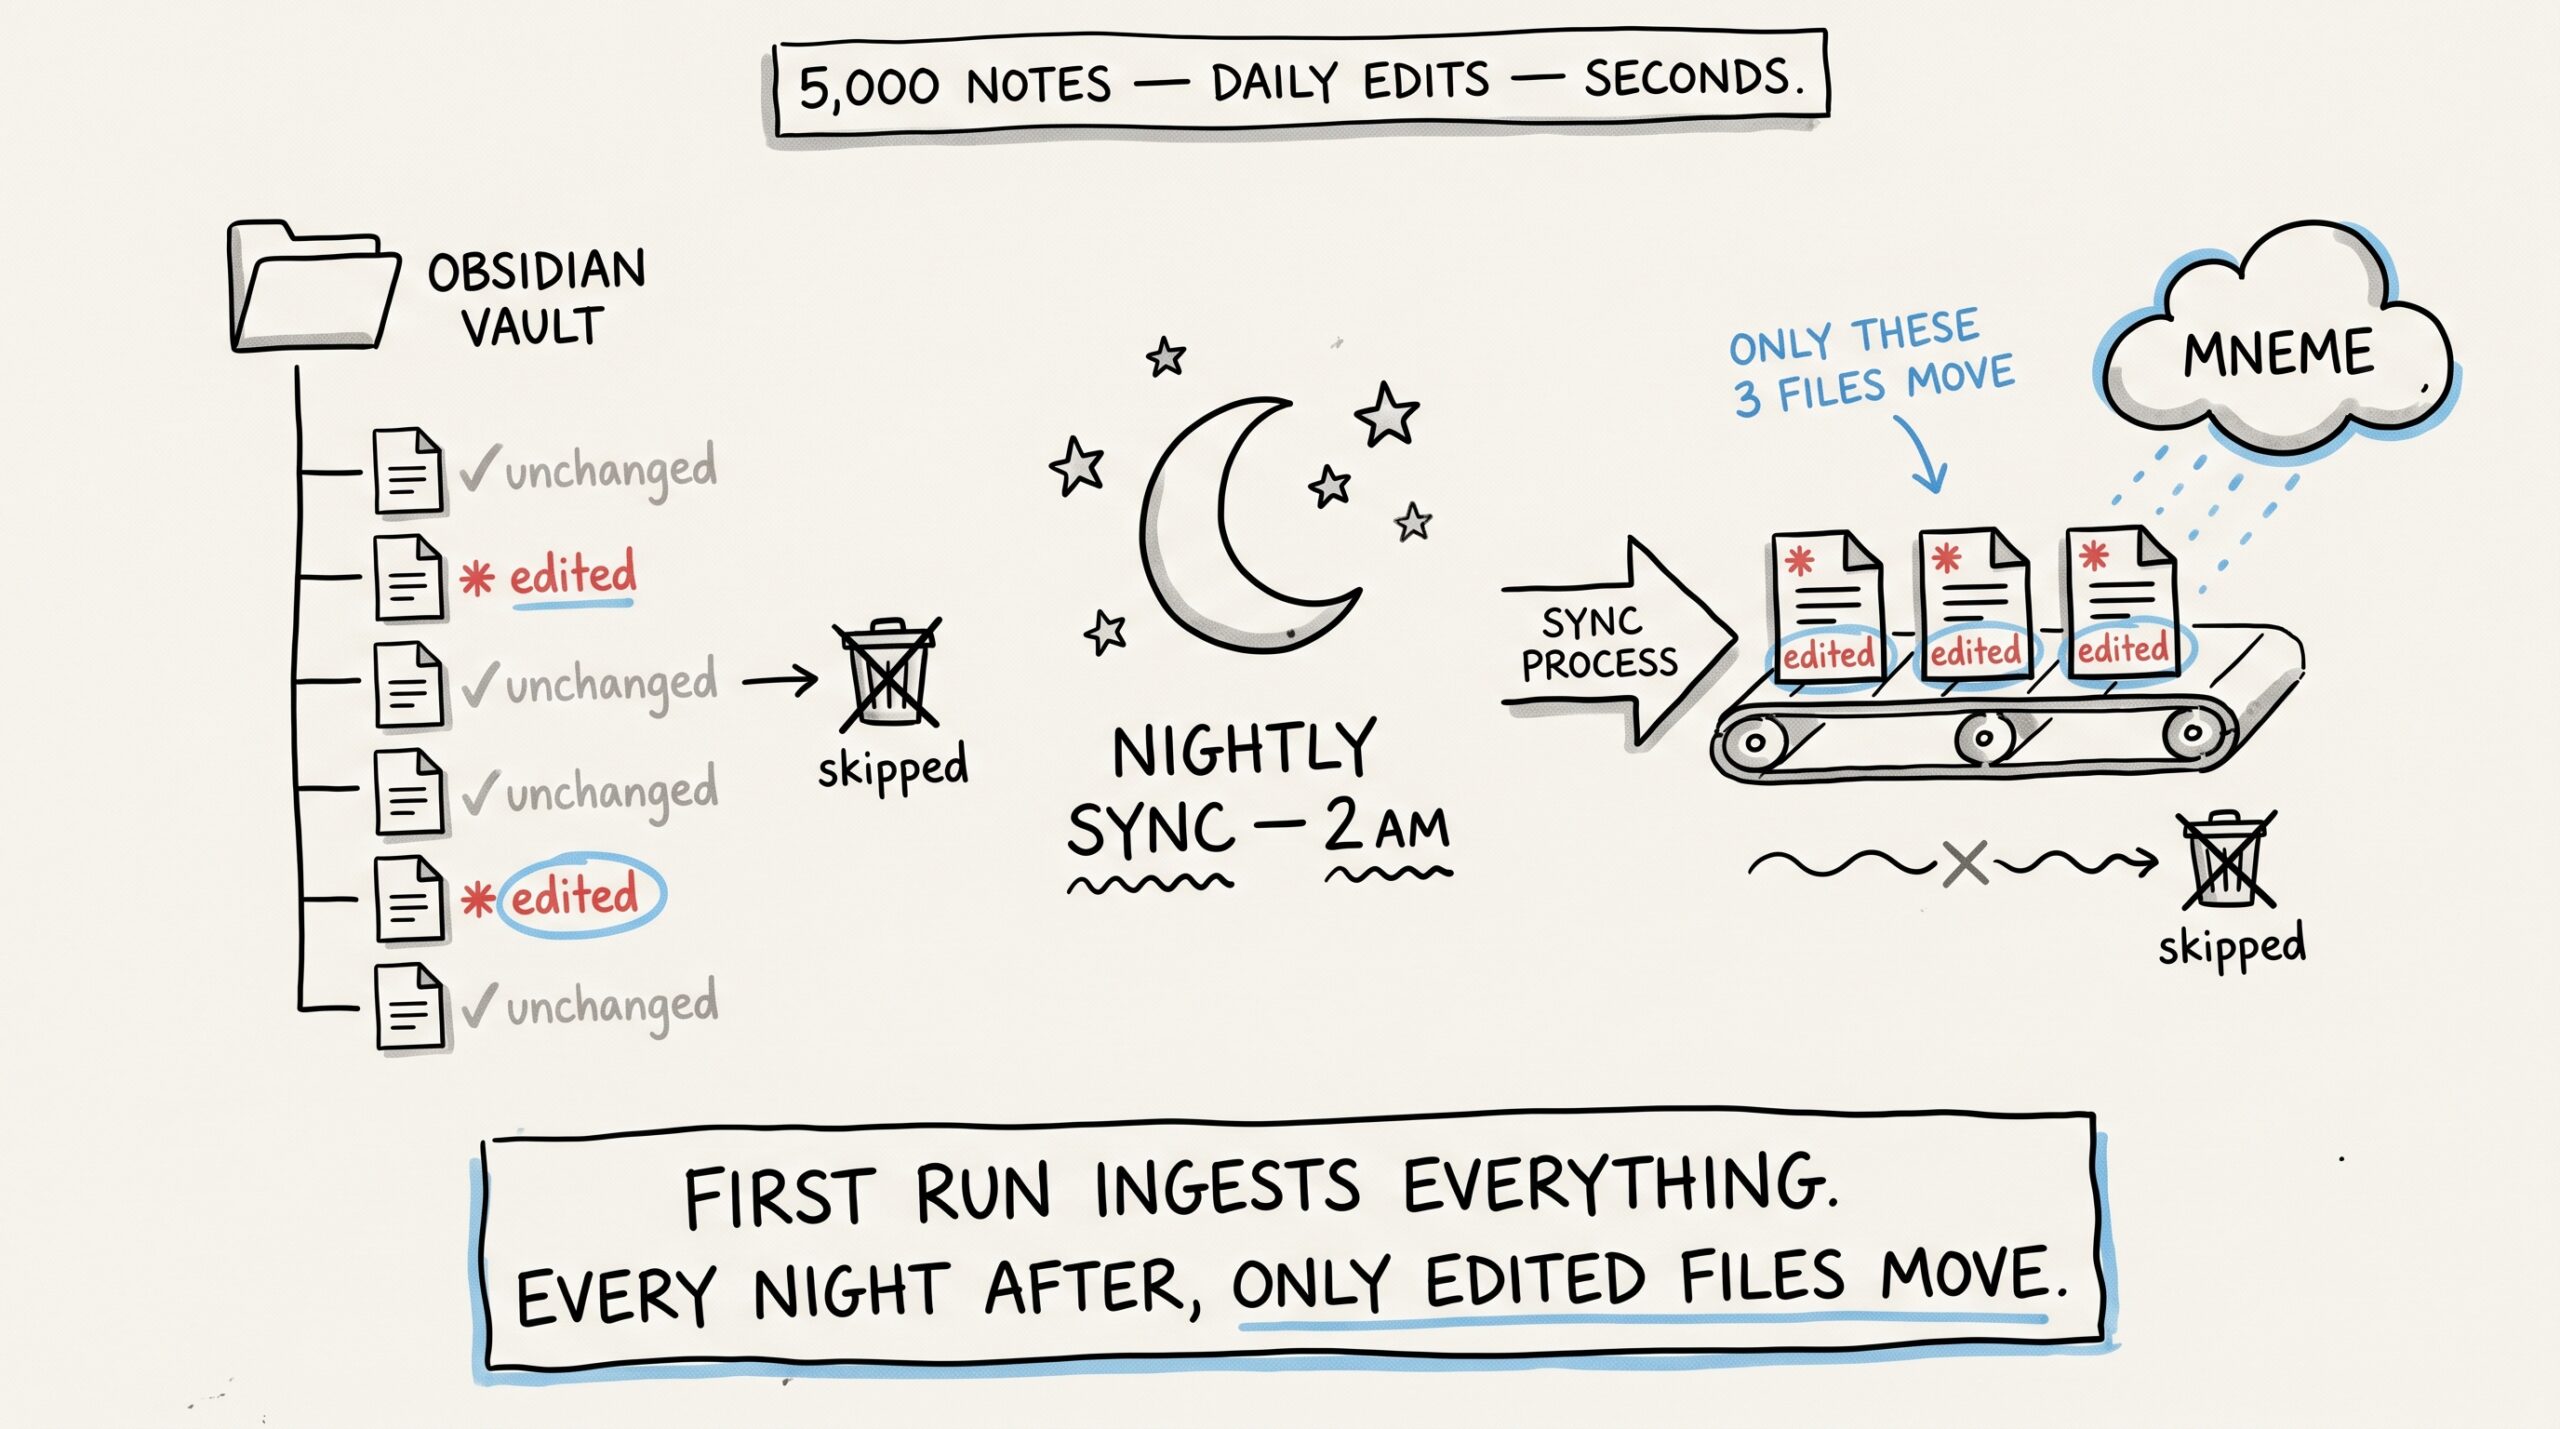 5,000 NOTES — DAILY EDITS — SECONDS.
OBSIDIAN
VAULT
✓ unchanged
* edited
✓ unchanged
✓ unchanged
* edited
✓ unchanged
skipped
NIGHTLY
SYNC — 2 AM
SYNC
PROCESS
ONLY THESE
3 FILES MOVE
MNEME
* * *
edited edited edited
skipped
FIRST RUN INGESTS EVERYTHING.
EVERY NIGHT AFTER, ONLY EDITED FILES MOVE.